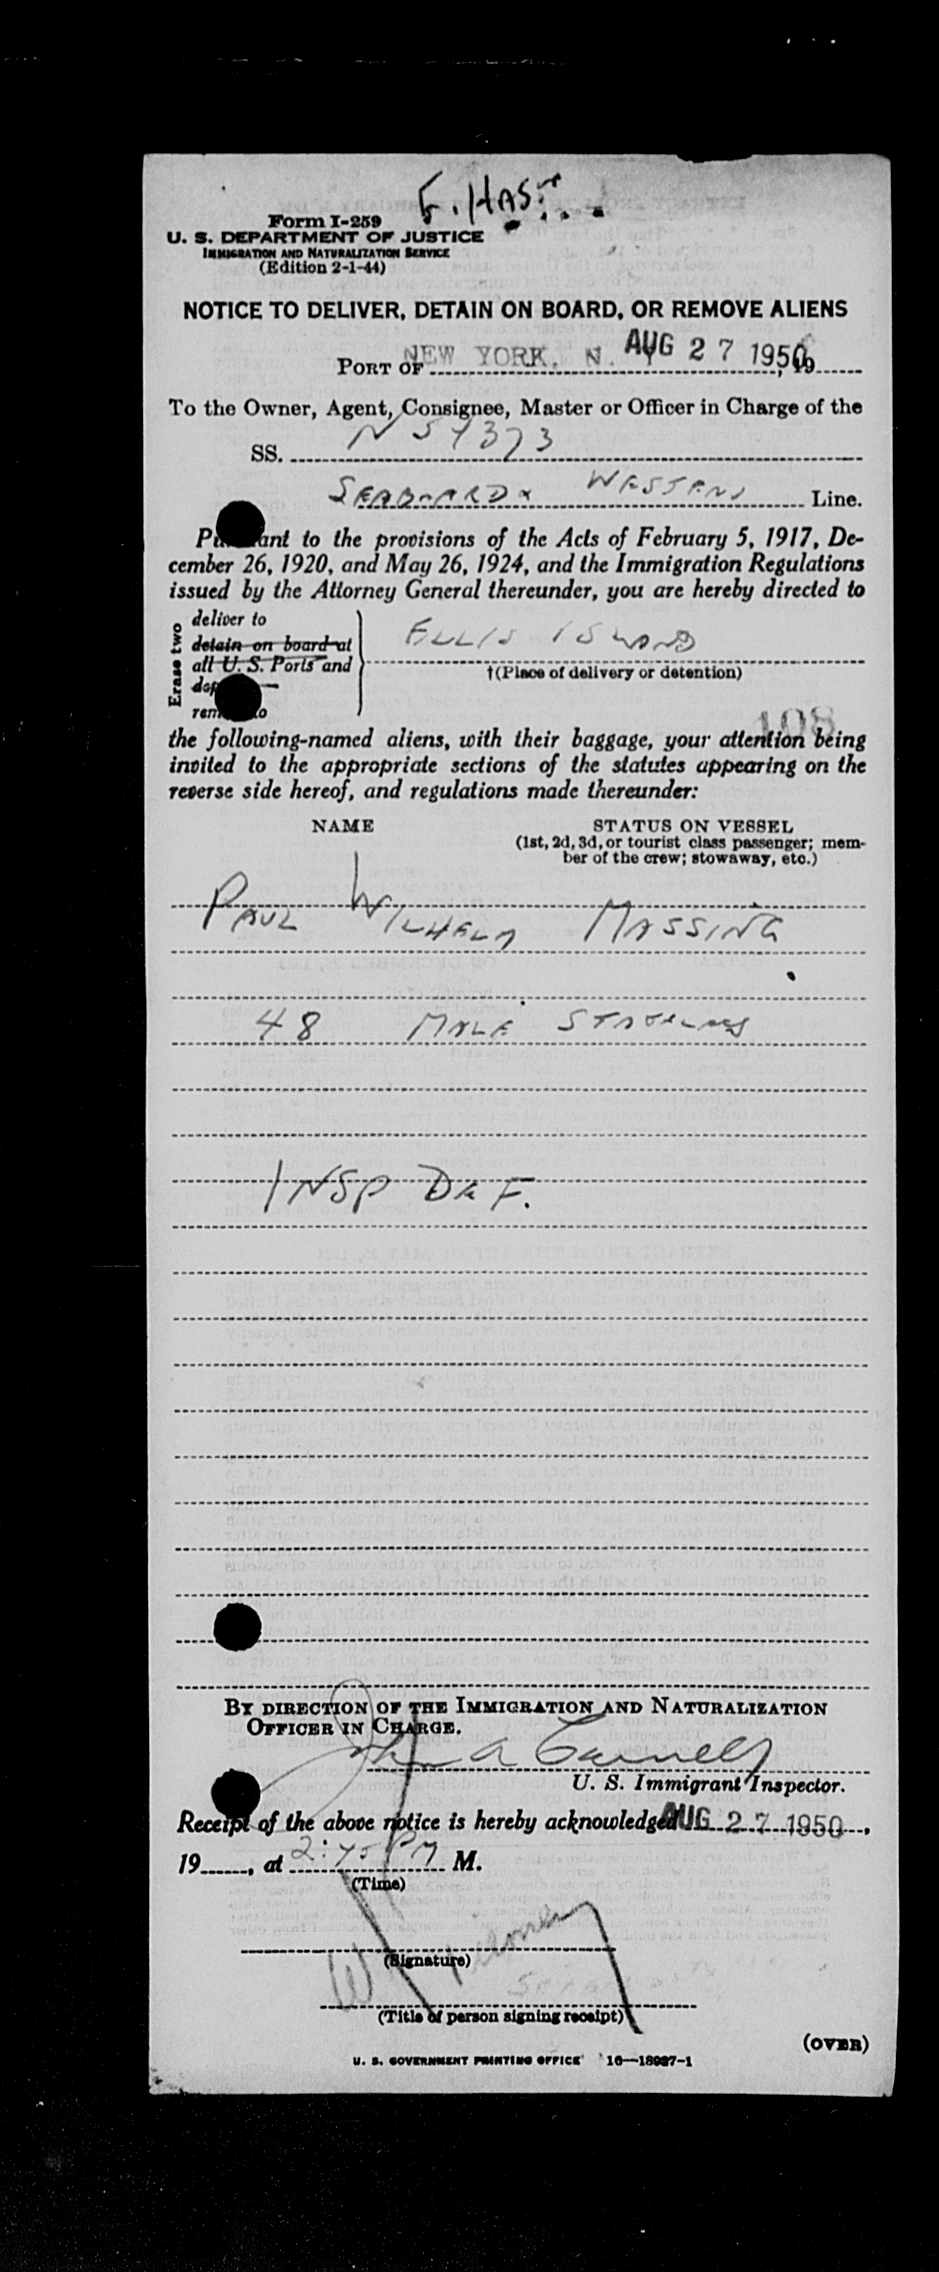 Form I-259
U. S. DEPARTMENT OF JUSTICE
IMMIGRATION AND NATURALIZATION SERVICE
(Edition 2-1-44)
NOTICE TO DELIVER, DETAIN ON BOARD, OR REMOVE ALIENS
PORT OF NEW YORK, N. Y AUG 27 1950, 19
To the Owner, Agent, Consignee, Master or Officer in Charge of the
SS. N 51373
SEABOARD & WESTERN Line.
Pursuant to the provisions of the Acts of February 5, 1917, De-
cember 26, 1920, and May 26, 1924, and the Immigration Regulations
issued by the Attorney General thereunder, you are hereby directed to
Erase two
deliver to
detain on board at
all U. S. Ports and
remove to
ELLIS ISLAND
†(Place of delivery or detention)
108
the following-named aliens, with their baggage, your attention being
invited to the appropriate sections of the statutes appearing on the
reverse side hereof, and regulations made thereunder:
NAME STATUS ON VESSEL
(1st, 2d, 3d, or tourist class passenger; mem-
ber of the crew; stowaway, etc.)
PAUL WILHELM MASSING
48 MALE
INSP DEF.
BY DIRECTION OF THE IMMIGRATION AND NATURALIZATION
OFFICER IN CHARGE.
John A
U. S. Immigrant Inspector.
Receipt of the above notice is hereby acknowledged AUG 27 1950,
19, at 2:45 PM M.
(Time)
(Signature)
(Title of person signing receipt)
(OVER)
U. S. GOVERNMENT PRINTING OFFICE 16—18987-1